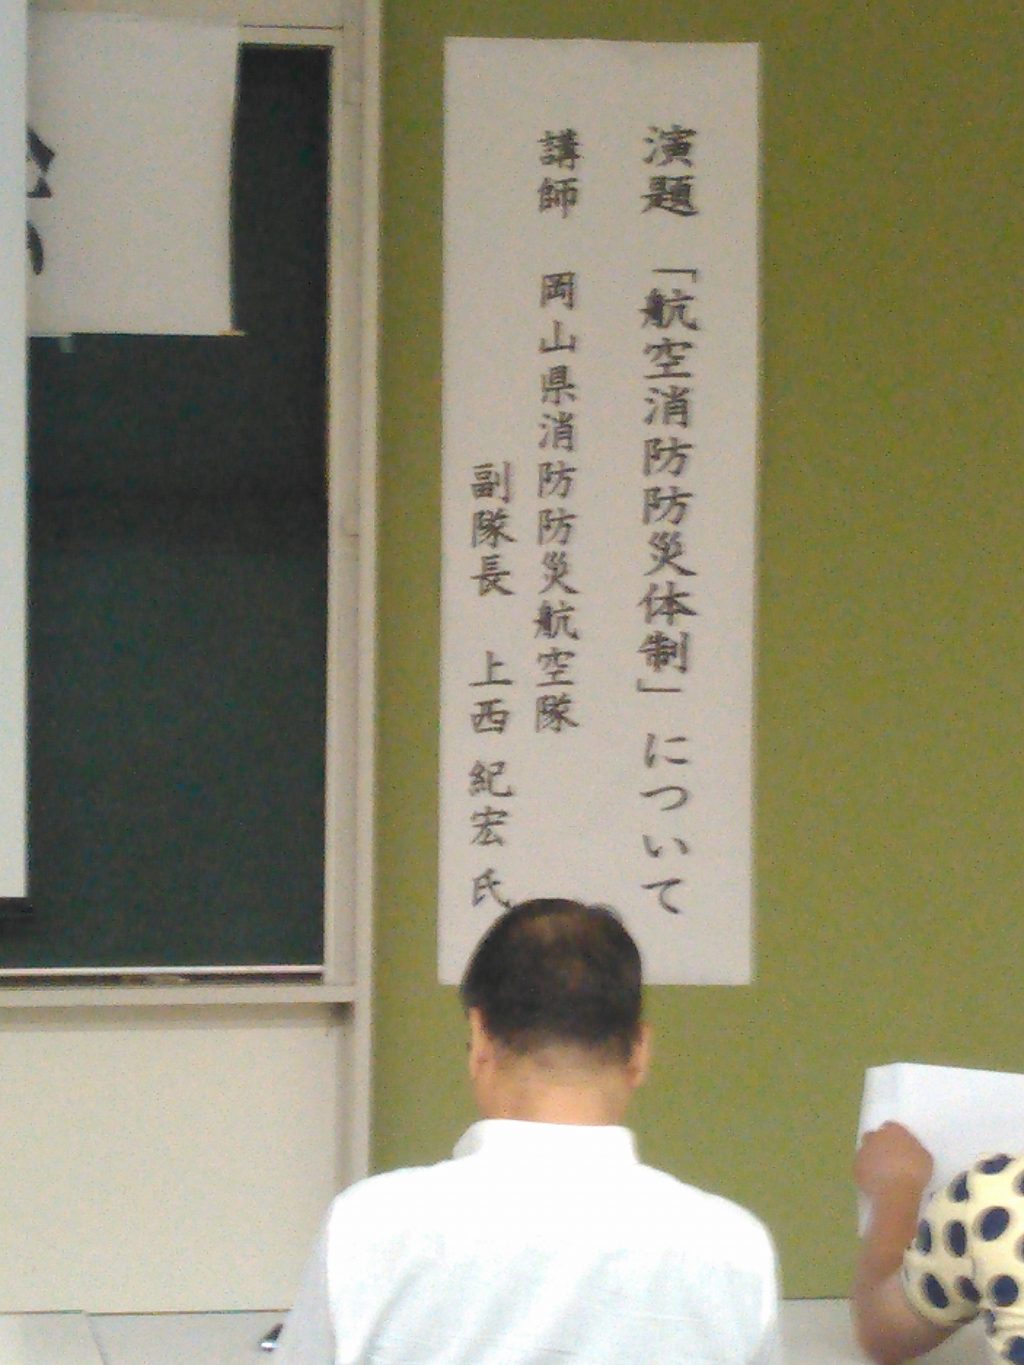 演題 「航空消防防災体制」について
講師 岡山県消防防災航空隊
副隊長 上西 紀宏 氏